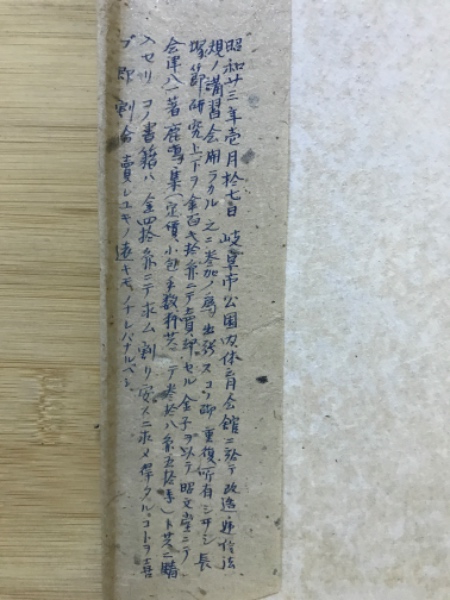 昭和廿三年壱月拾七日 岐阜市公園内体育会館ニ於テ改造逓信法
規ノ講習会開ラカル 之ニ参加ノ為出張スコノ際重復所有シヰシ長
塚節研究上下ヲ金百弐拾円ニテ賣却セル金子ヲ以テ昭文堂ニテ
会津八一著鹿鳴集(定價、小包手数料共ニテ参拾八円五拾銭)ト共ニ購
入セリ コノ書籍ハ金四拾円ニテ求ム 割リ安スニ求メ得タルコトヲ喜
ブ 即割合賣レユキノ遠キモノナレバナルベシ